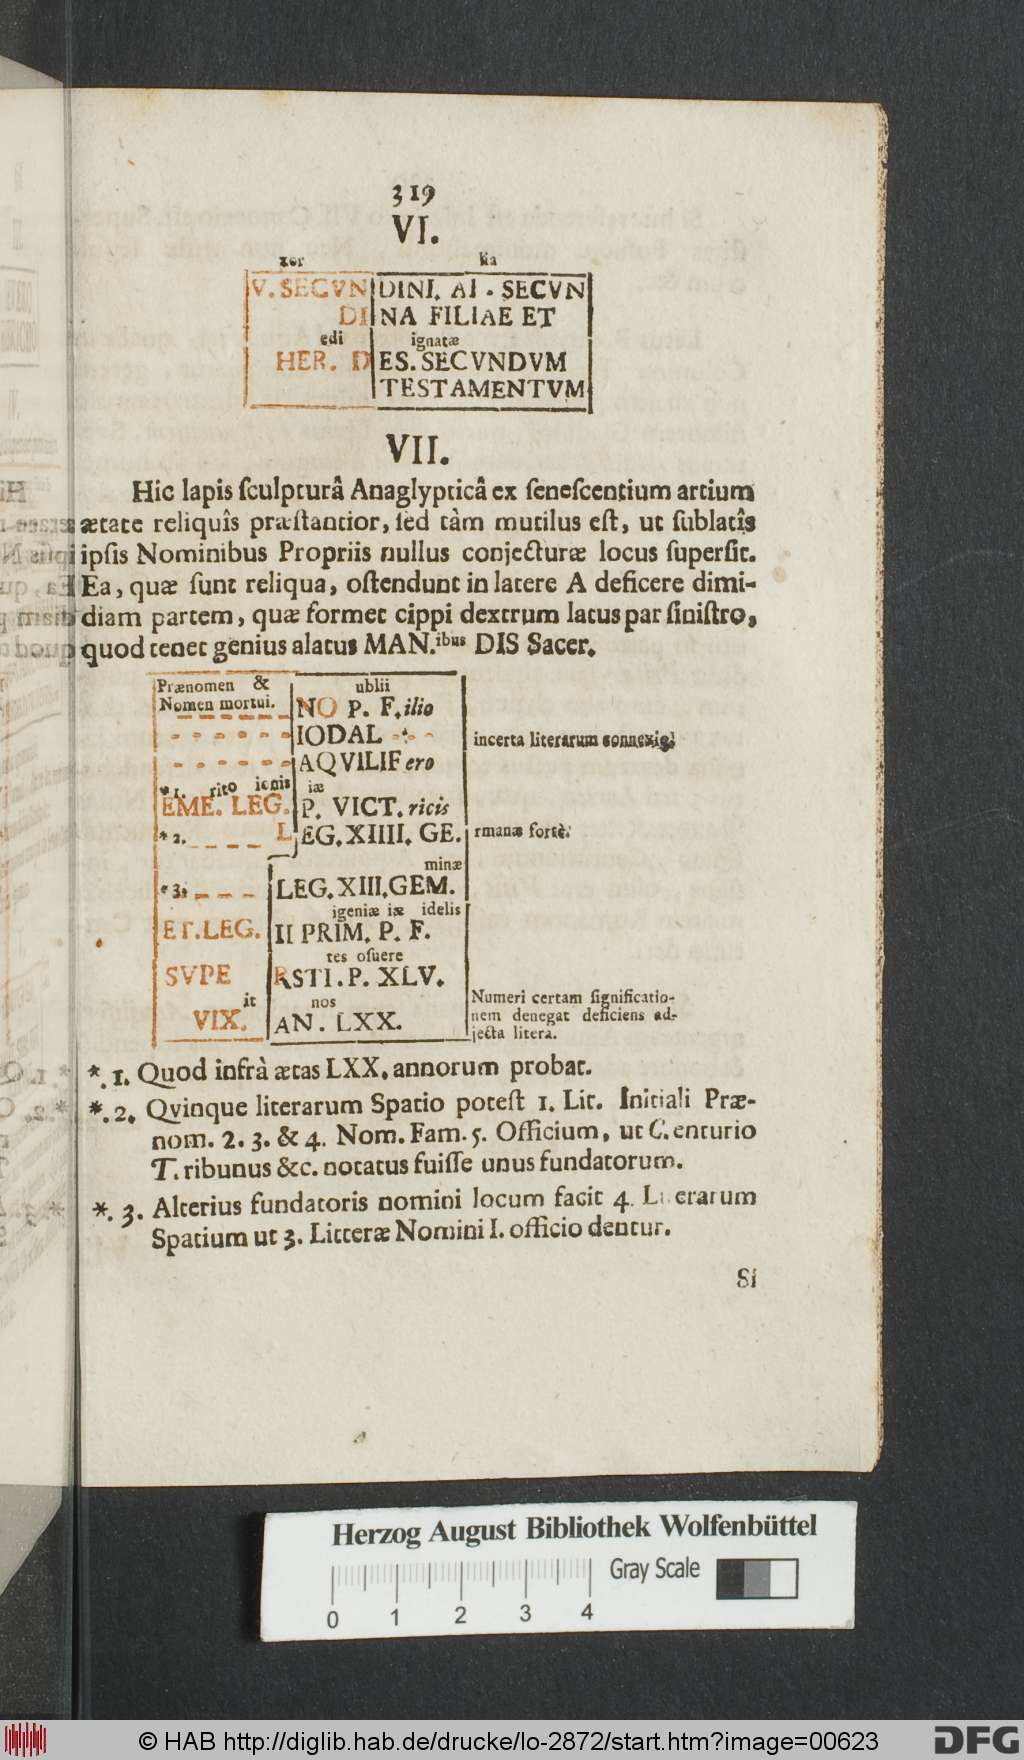 319
VI.
xor lia
V. SECVN DINI. AI · SECVN
DI NA FILIAE ET
edi ignatæ
HER. D ES. SECVNDVM
TESTAMENTVM
VII.
Hic lapis ſculpturâ Anaglypticâ ex ſeneſcentium artium
ætate reliquîs præſtantior, ſed tàm mutilus eſt, ut ſublatîs
ipſis Nominibus Propriis nullus conjecturæ locus ſuperſit.
Ea, quæ ſunt reliqua, oſtendunt in latere A deficere dimi-
diam partem, quæ formet cippi dextrum latus par ſiniſtro,
quod tenet genius alatus MAN.ibus DIS Sacer.
Prænomen & ublii
Nomen mortui. NO P. F.ilio
IODAL incerta literarum connexio.
AQVILIFero
*1. rito ionis iæ
EME. LEG. P. VICT.ricis
*2. L EG. XIIII. GE. rmanæ fortè.
minæ
*3. LEG. XIII. GEM.
igeniæ iæ idelis
ET. LEG. II PRIM. P. F.
tes oſuere
SVPE RSTI. P. XLV.
it nos Numeri certam ſignificatio-
VIX. AN. LXX. nem denegat deficiens ad-
jecta litera.
*. 1. Quod infrà ætas LXX. annorum probat.
*. 2. Qvinque literarum Spatio poteſt 1. Lit. Initiali Præ-
nom. 2. 3. & 4. Nom. Fam. 5. Officium, ut C. enturio
T. ribunus &c. notatus fuiſſe unus fundatorum.
*. 3. Alterius fundatoris nomini locum facit 4. Literarum
Spatium ut 3. Litteræ Nomini I. officio dentur.
Si
Herzog August Bibliothek Wolfenbüttel
Gray Scale
0 1 2 3 4
© HAB http://diglib.hab.de/drucke/lo-2872/start.htm?image=00623
DFG